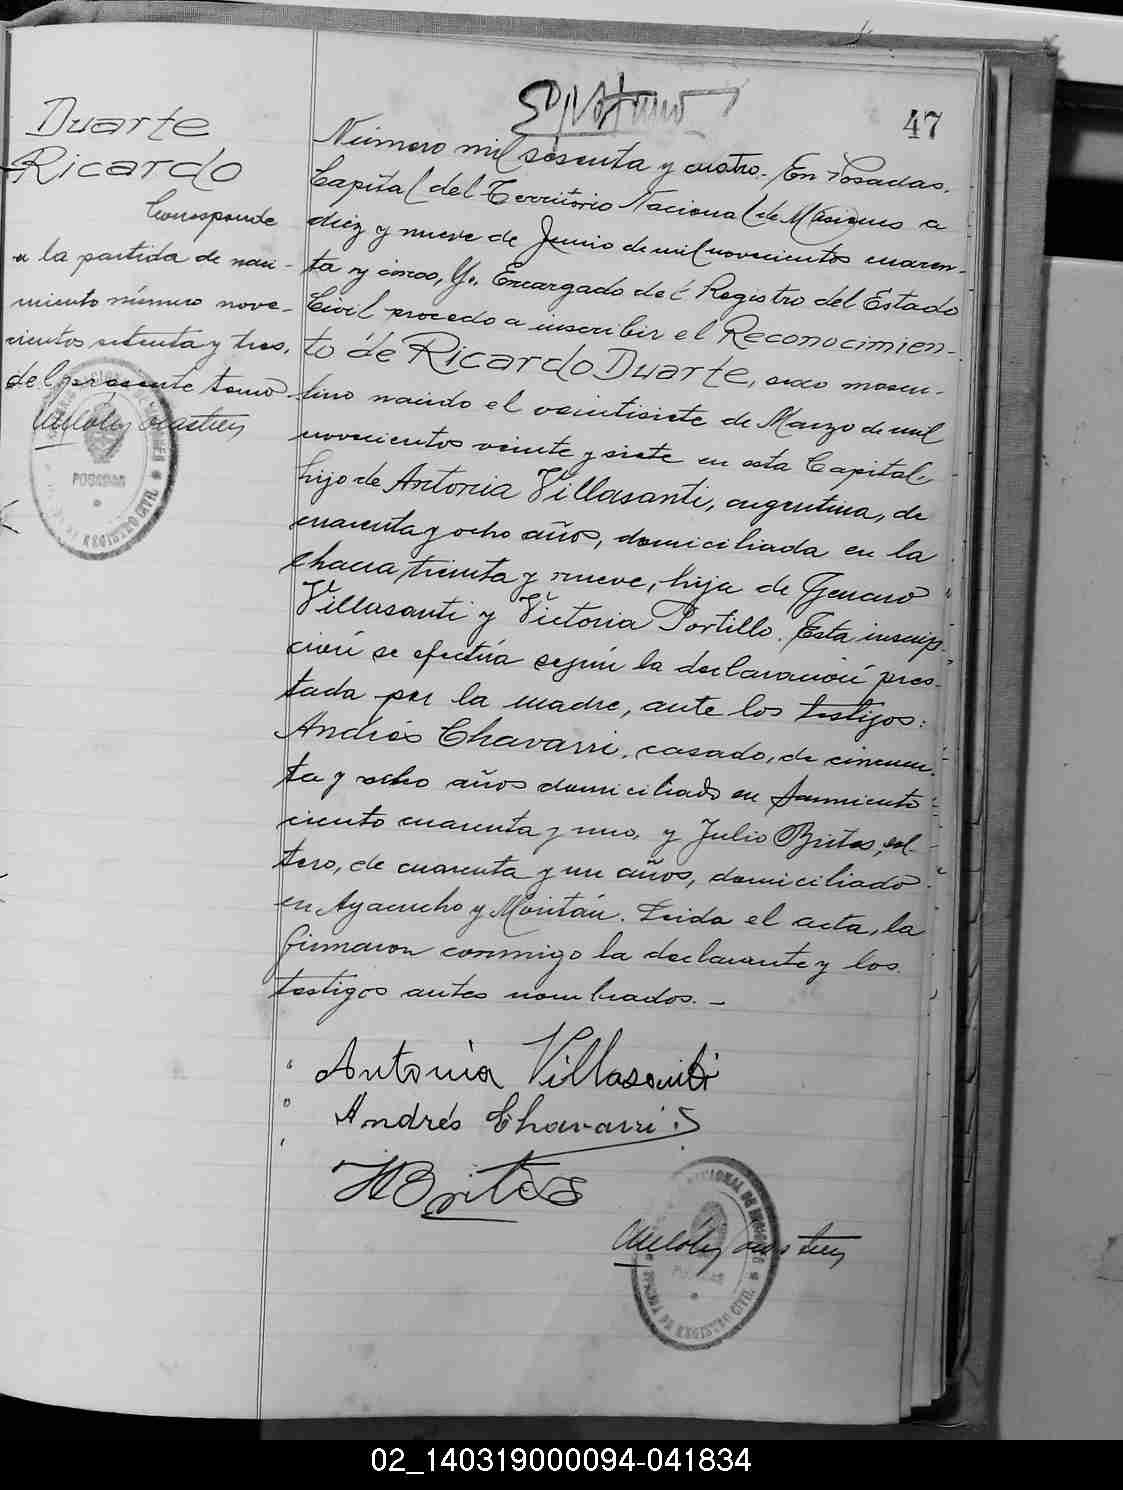 47
Duarte
Ricardo
Corresponde
a la partida de naci-
miento número nove-
cientos setenta y tres,
del presente tomo
Número mil sesenta y cuatro. En Posadas,
Capital del Territorio Nacional de Misiones a
diez y nueve de Junio de mil novecientos cuaren-
ta y cinco, Yo, Encargado del Registro del Estado
Civil procedo a inscribir el Reconocimien-
to de Ricardo Duarte, sexo mascu-
lino nacido el veintisiete de Marzo de mil
novecientos veinte y siete en esta Capital,
hijo de Antonia Villasanti, argentina, de
cuarenta y ocho años, domiciliada en la
chacra treinta y nueve, hija de Genaro
Villasanti y Victoria Portillo. Esta inscrip-
ción se efectúa según la declaración pres-
tada por la madre, ante los testigos:
Andrés Chavarri, casado, de cincuen-
ta y ocho años domiciliado en Sarmiento
ciento cuarenta y uno, y Julio Brites, sol-
tero, de cuarenta y un años, domiciliado
en Ayacucho y Moritán. Leida el acta, la
firmaron conmigo la declarante y los
testigos antes nombrados. -
Antonia Villasanti
Andrés Chavarri
Brites
POSADAS
REGISTRO CIVIL
02_140319000094-041834